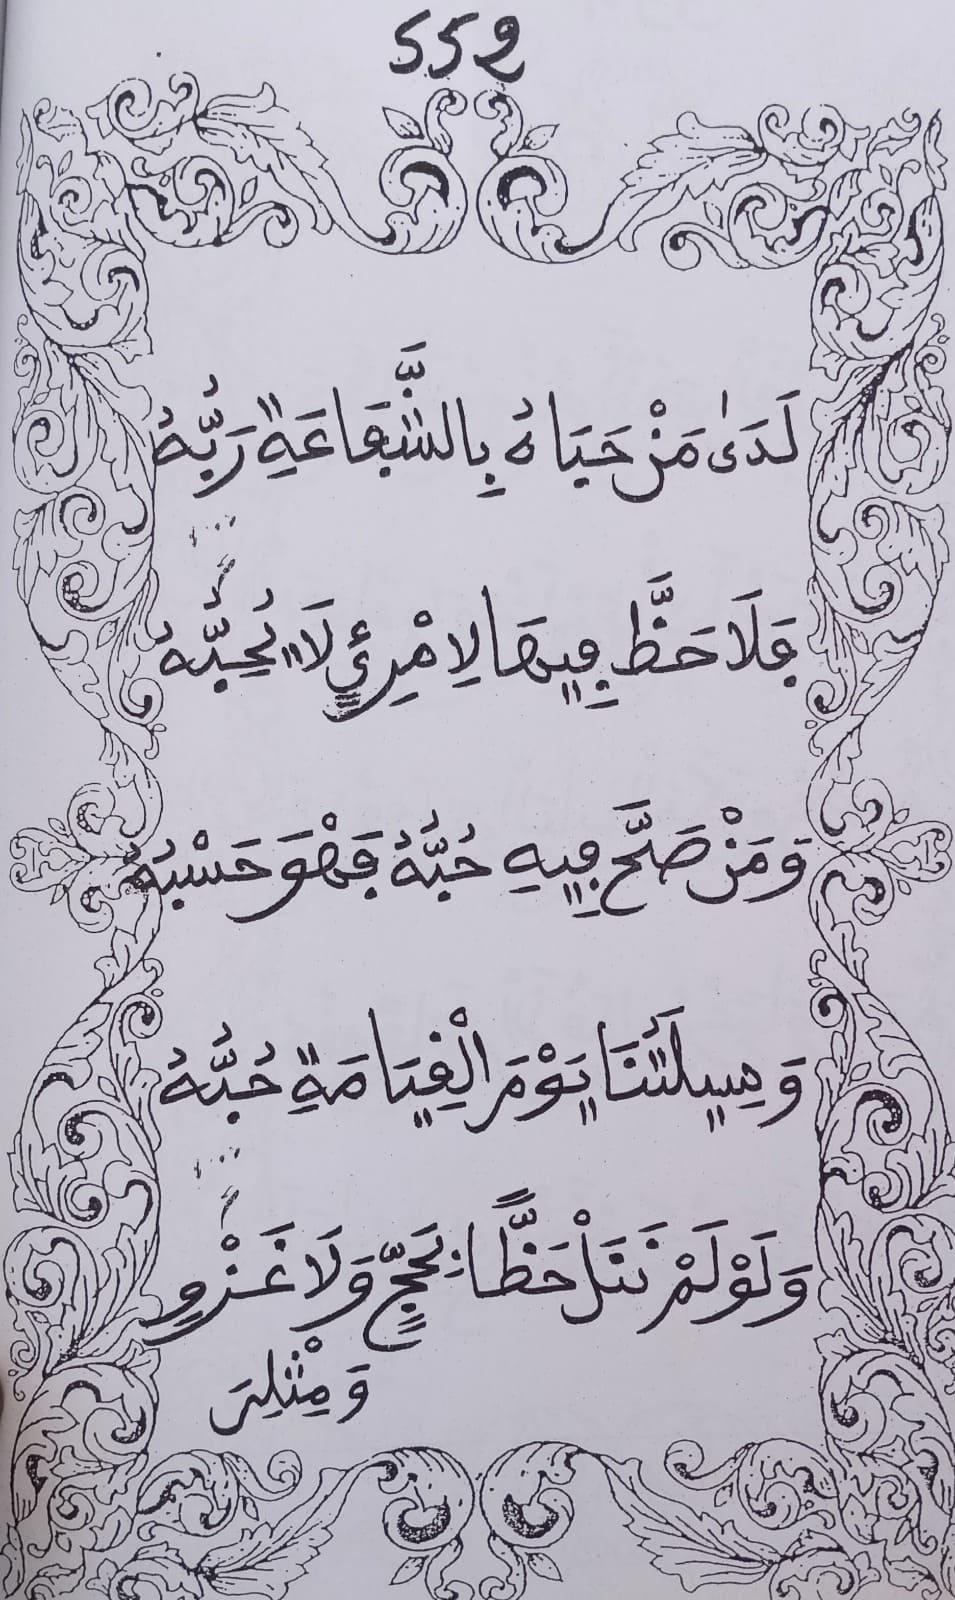 552
لَدَىٰ مَنْ حَبَاهُ بِالشَّفَاعَةِ رَبُّهُ
فَلَا حَظَّ فِيهَا لِامْرِئٍ لَا يُحِبُّهُ
وَمَنْ صَحَّ فِيهِ حُبُّهُ فَهْوَ حَسْبُهُ
وَسِيلَتُنَا يَوْمَ الْقِيَامَةِ حُبُّهُ
وَلَوْ لَمْ نَنَلْ حَظًّا بِحَجٍّ وَلَا غَزْوِ
وَمِثْلِىَ